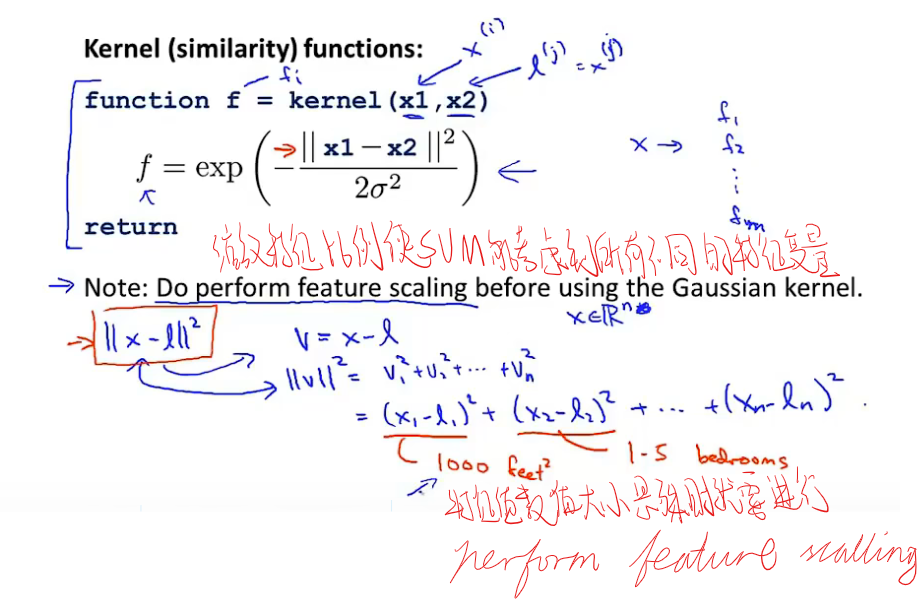 Kernel (similarity) functions:
x^(i)
l^(j) = x^(j)
f_i
function f = kernel(x1,x2)
f = exp(-||x1-x2||²/2σ²)
return
x → f₁
f₂
⋮
f_m
缩放特征比例使SVM能考虑到所有不同的特征变量
→ Note: Do perform feature scaling before using the Gaussian kernel.
x∈ℝⁿ
→ ||x-l||² v = x-l
||v||² = v₁²+v₂²+⋯+vₙ²
= (x₁-l₁)²+(x₂-l₂)²+⋯+(xₙ-lₙ)²
1000 feet² 1-5 bedrooms
特征值数值大小 时 需要进行
perform feature scalling